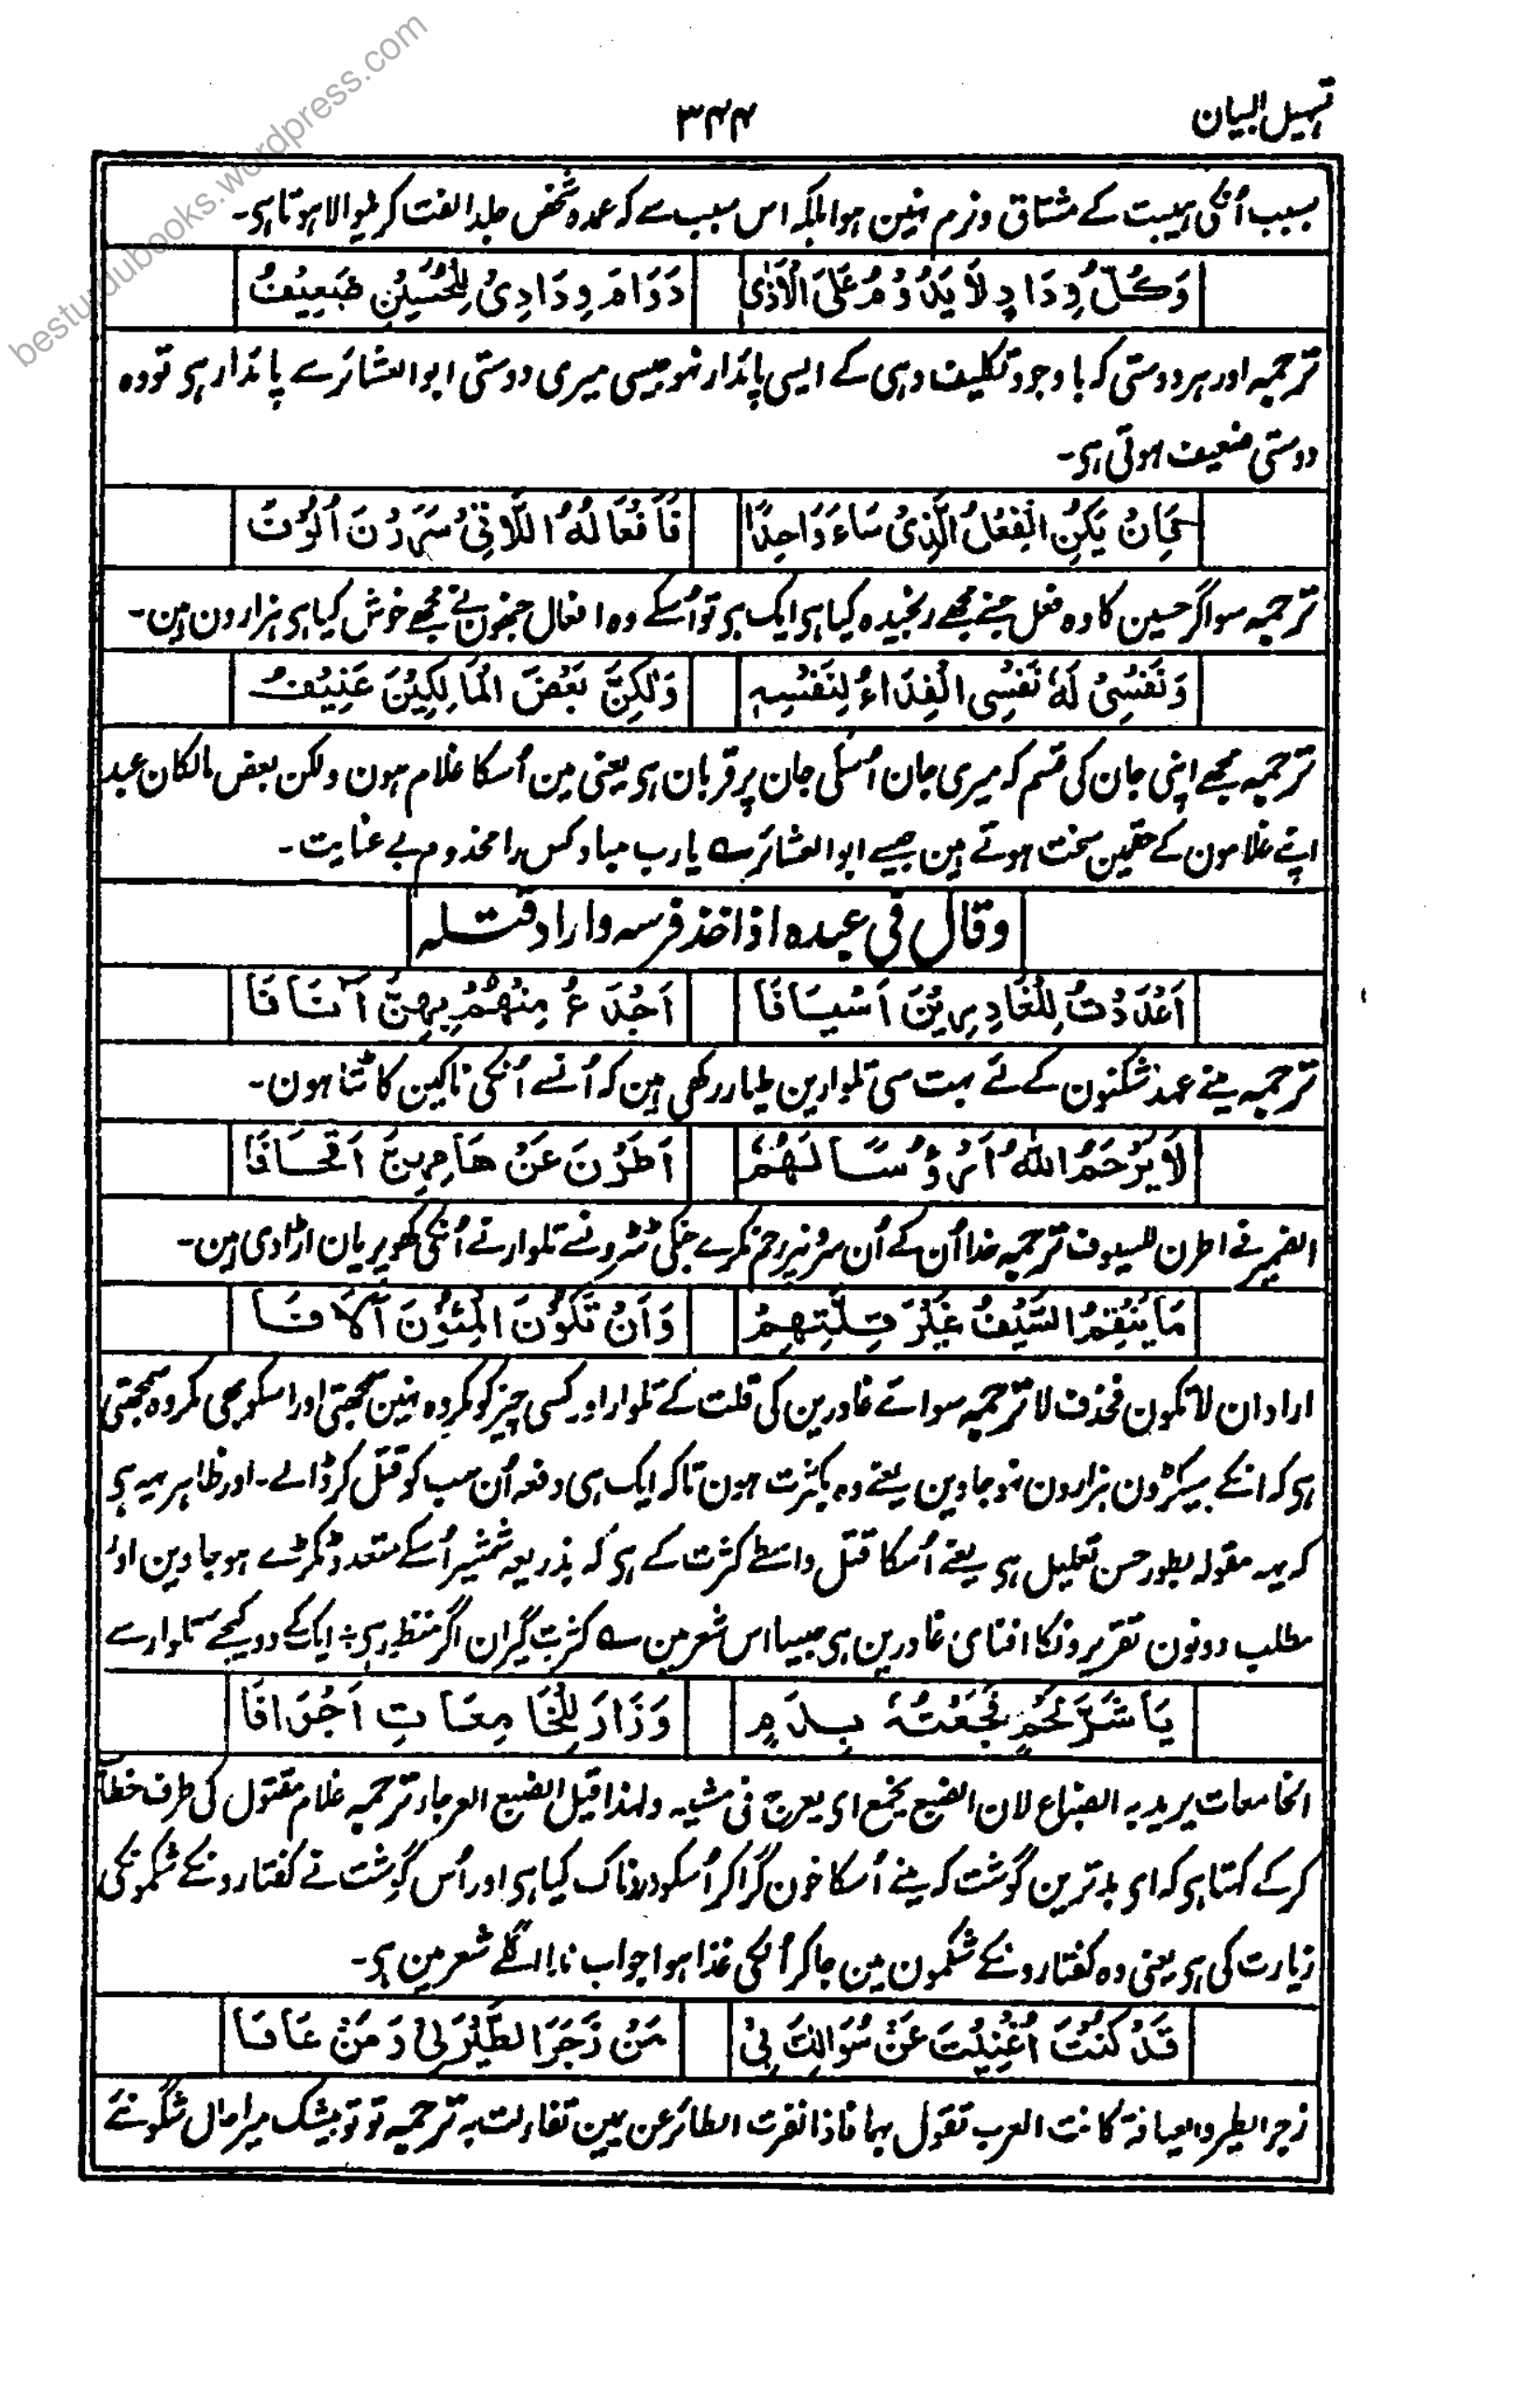 تسہیل البیان
۳۴۴
بسبب اُنکی ہیبت کے مشتاق و نرم نہین ہوا بلکہ اس سبب سے کہ عمدہ شخص جلد الفت کرنیوالا ہوتا ہی۔
وَكُلُّ وِدَادٍ لَا يَدُوْمُ عَلَى الْاَذٰى دَوَامَ وِدَادِيْ لِلْحُسَيْنِ ضَعِيْفُ
ترجمہ اور ہر دوستی کہ باوجود تکلیف دہی کے ایسی پائدار نہو جیسی میری دوستی ابوالعشائر سے پائدار ہی تو وہ
دوستی ضعیف ہوتی ہی۔
فَاِنْ يَكُنِ الْفِعْلُ الَّذِيْ سَاءَ وَاحِدًا فَاَفْعَالُهُ اللَّاتِيْ سَرَرْنَ اُلُوْفُ
ترجمہ سو اگر حسین کا وہ فعل جسنے مجھے رنجیدہ کیا ہی ایک ہی تو اُسکے وہ افعال جنھون نے مجھے خوش کیا ہی ہزارون ہین۔
وَنَفْسِيْ لَهٗ نَفْسِى الْفِدَاءُ لِنَفْسِهٖ وَلٰكِنَّ بَعْضَ الْمَالِكِيْنَ عَنِيْفُ
ترجمہ مجھے اپنی جان کی قسم کہ میری جان اُسکی جان پر قربان ہی یعنی مین اُسکا غلام ہون ولکن بعض مالکان عبد
اپنے غلامون کے حقمین سخت ہوتے ہین جیسے ابوالعشائر ؎ یارب مباد کس را مخدوم بے عنایت۔
وقال فی عبدہ اذا اخذ فرسہ واراد قتلہ
اَعْدَدْتُ لِلْغَادِرِيْنَ اَسْيَافَا اَجْدَعُ مِنْهُمْ بِهِنَّ آنَافَا
ترجمہ مینے عہد شکنون کے لئے بہت سی تلوارین طیار رکھی ہین کہ اُنسے اُنکی ناکین کاٹتا ہون۔
لَا يَرْحَمُ اللّٰهُ اَرْؤُسًا لَهُمْ اَطَرْنَ عَنْ هَامِهِنَّ اَقْحَافَا
الضمیر فے اطرن للسیوف ترجمہ خدا اُن کے اُن سرونپر رحم نکرے جنکی تلوارنے اُنکی کھوپریان اڑادی ہین۔
مَا يَنْقِمُ السَّيْفُ غَيْرَ قِلَّتِهِمْ وَاَنْ تَكُوْنَ الْمِئُوْنَ آلَافَا
اراد ان لاتکون فحذف لا ترجمہ سوائے غادرین کی قلت کے تلوار اور کسی چیز کو مکروہ نہین سمجھتی اور اسکو بھی مکروہ سمجھتی
ہی کہ انکے سیکڑون ہزارون نہوجاوین یعنے وہ بکثرت ہون تاکہ ایک ہی دفعہ اُن سب کو قتل کر ڈالے۔ اور ظاہر یہہ ہی
کہ یہہ مقولہ بطور حسن تعلیل ہی یعنے اُسکا قتل واسطے کثرت کے ہی کہ بذریعہ شمشیر اُسکے متعدد ٹکڑے ہوجاوین اور
مطلب دونون تقریرونکا افنای غادرین ہی جیسا اس شعر مین ؎ کثرت گیران اگر منظور ہی ؛ ایک کے دو کیجے تلوار سے
يَا شَرَّ لَحْمٍ فَجَعْتُهٗ بِدَمٍ وَزَارَ لِلْخَامِعَاتِ اَجْوَافَا
الخامعات یرید بہ الضباع لان الضبع یخمع ای یعرج فی مشیہ ولہذا قیل الضبع العرجاء ترجمہ غلام مقتول کی طرف خطاب
کرکے کہتا ہی کہ ای بدترین گوشت کہ مینے اُسکا خون گراکر اُسکو دردناک کیا ہی اور اُس گوشت نے کفتارونکے شکمونکی
زیارت کی ہی یعنی وہ کفتارونکے شکمون مین جاکر اُنکی غذا ہوا جواب ندا اگلے شعر مین ہی۔
قَدْ كُنْتَ اُغْنِيْتَ عَنْ سُوَالِكَ بِيْ مَنْ زَجَرَ الطَّيْرَ لِيْ وَمَنْ عَافَا
زجر الطیر والعیافۃ کانت العرب تقول بہما فاذا نفرت الطائر عن یمین تفاءلت بہ ترجمہ تو تو بیشک میرا حال شگونئے
besturdubooks.wordpress.com